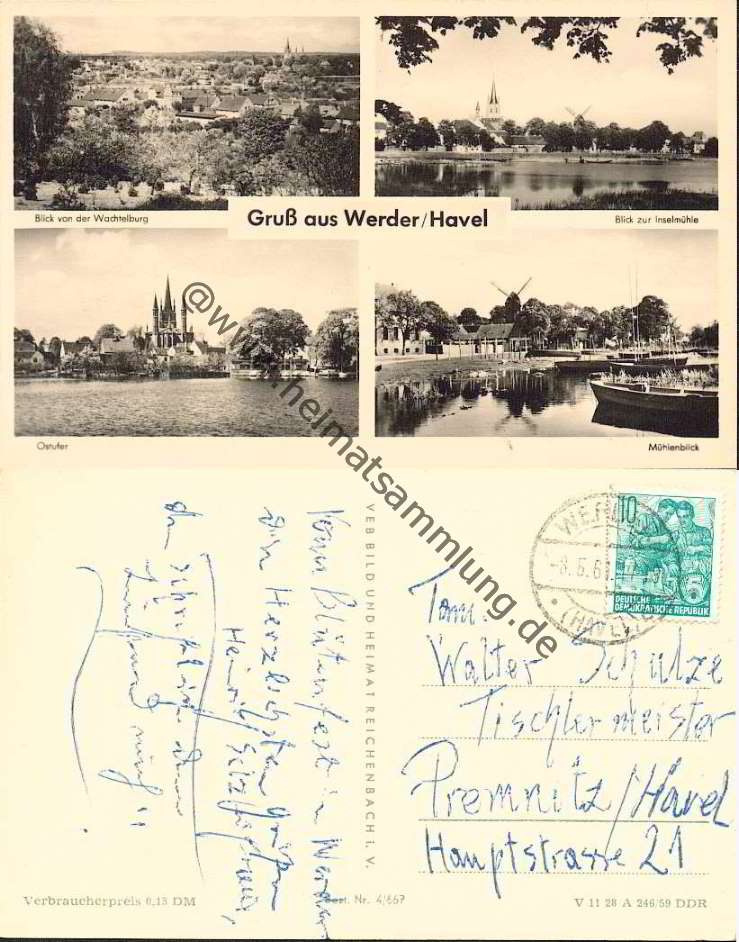 Blick von der Wachtelburg
Gruß aus Werder/Havel
Blick zur Inselmühle
Ostufer
Mühlenblick
@www.heimatsammlung.de
Vom Blütenfest in Werder
die Herzlichsten Grüße
Heinrich
VEB BILD UND HEIMAT REICHENBACH i. V.
WERDER
-8.5.61
(HAVEL)
10
5
DEUTSCHE
DEMOKRATISCHE REPUBLIK
Fam.
Walter Schulze
Tischlermeister
Premnitz/Havel
Hauptstrasse 21
Verbraucherpreis 0,13 DM
Best. Nr. 4/667
V 11 28 A 246/59 DDR